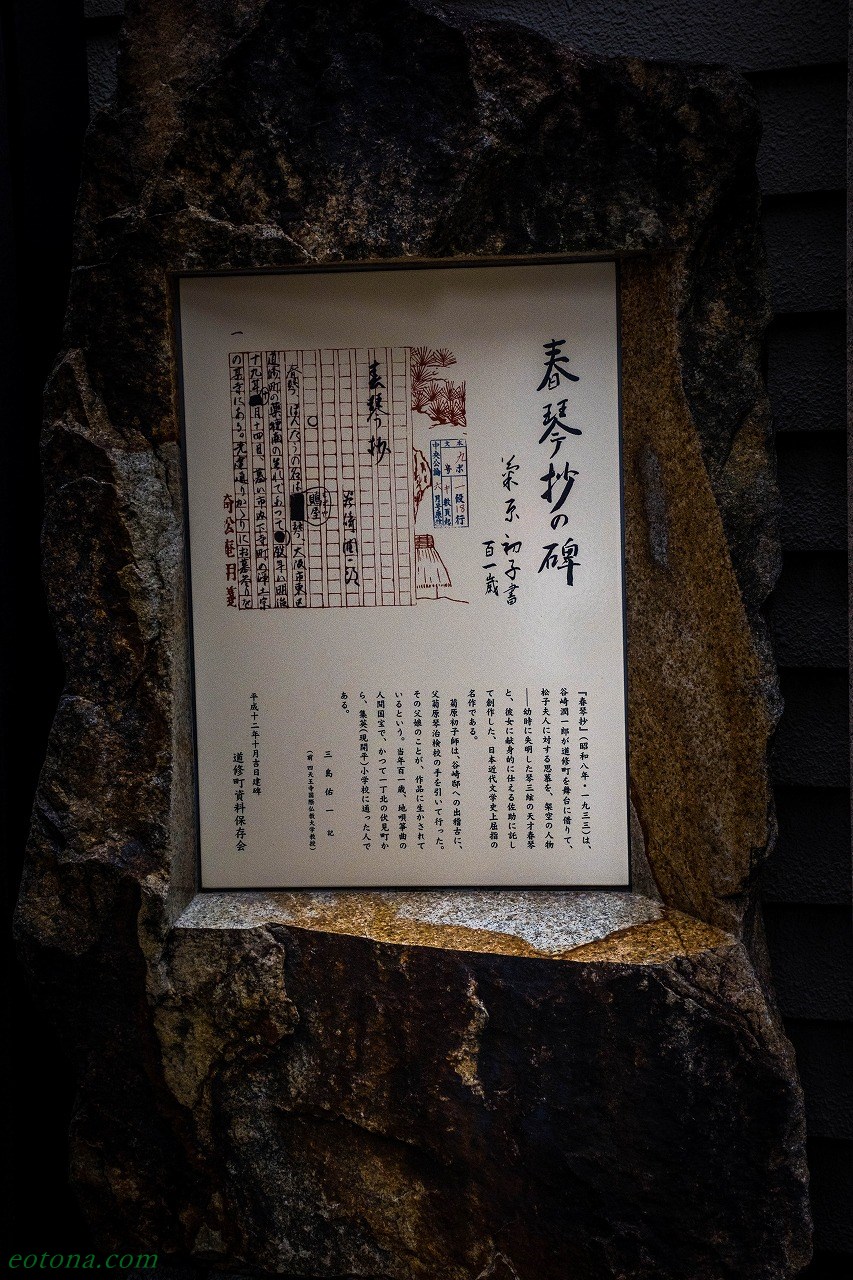 春琴抄の碑
菊原初子書
百一歳
本文
九ポ一段18行
中央公論六月号原稿
春琴抄
谷崎潤一郎
春琴、ほんたうの名は
琴、大阪市東区
鵙屋
道修町の薬種商の生れであつて
歿年は明治
十九年
月十四日、墓は市内下寺町の浄土宗
の某寺にある。先達通りかゝりにお墓参りを
一
『春琴抄』(昭和八年・一九三三)は、
谷崎潤一郎が道修町を舞台に借りて、
松子夫人に対する思慕を、架空の人物
――幼時に失明した琴三絃の天才春琴
と、彼女に献身的に仕える佐助に託し
て創作した、日本近代文学史上屈指の
名作である。
菊原初子師は、谷崎邸への出稽古に、
父菊原琴治検校の手を引いて行った。
その父娘のことが、作品に生かされて
いるという。当年百一歳、地唄箏曲の
人間国宝で、かつて一丁北の伏見町か
ら、集英(現開平)小学校に通った人で
ある。
三島佑一 記
(前 四天王寺国際仏教大学教授)
平成十二年十月吉日建碑
道修町資料保存会
eotona.com